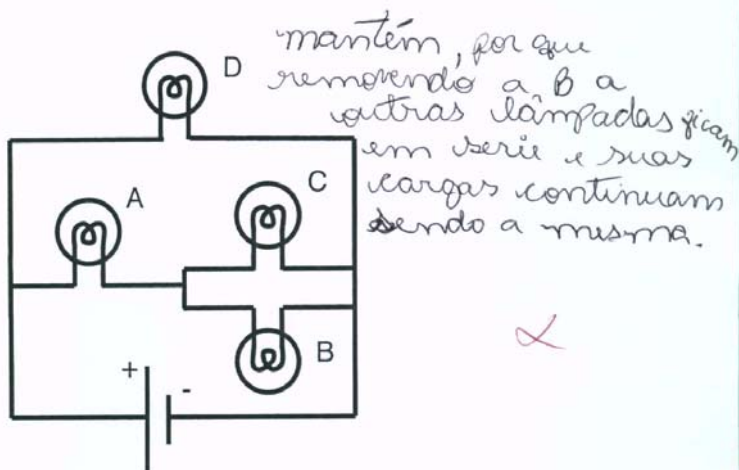 mantém, por que
D
removendo a B a
outras lâmpadas ficam
em serie e suas
cargas continuam
sendo a mesma.
A
C
B
+
-